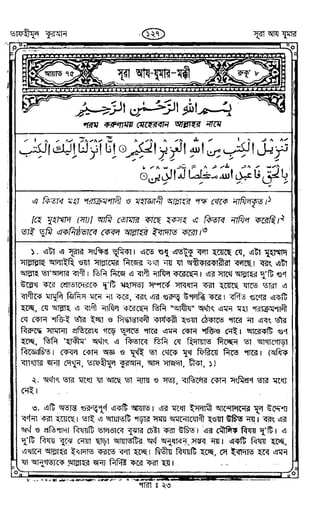 তাফহীমুল কুরআন ১২৭ সূরা আয যুমার
আয়াত ৭৫ সূরা আয-যুমার-মক্কী রুকূ' ৮
بِسْمِ اللهِ الرَّحْمٰنِ الرَّحِيْمِ
পরম করুণাময় মেহেরবান আল্লাহর নামে
تَنْزِيْلُ الْكِتٰبِ مِنَ اللهِ الْعَزِيْزِ الْحَكِيْمِ ۝ اِنَّا اَنْزَلْنَا اِلَيْكَ الْكِتٰبَ
بِالْحَقِّ فَاعْبُدِ اللهَ مُخْلِصًا لَّهُ الدِّيْنَ ۝
এ কিতাব মহা পরাক্রমশালী ও মহাজ্ঞানী আল্লাহর পক্ষ থেকে নাযিলকৃত।১
[হে মুহাম্মাদ (সা)] আমি তোমার কাছে হকসহ এ কিতাব নাযিল করেছি।২
তাই তুমি একনিষ্ঠভাবে কেবল আল্লাহর ইবাদাত করো।৩
১. এটা এ সূরার সংক্ষিপ্ত ভূমিকা। এতে শুধু এতটুকু বলা হয়েছে যে, এটা মুহাম্মাদ
সাল্লাল্লাহু আলাইহি ওয়া সাল্লামের নিজের কথা নয় যা অস্বীকারকারীরা বলছে। বরং এটা
আল্লাহ তা'আলার বাণী। তিনি নিজে এ বাণী নাযিল করেছেন। এর সাথে আল্লাহর দু'টি গুণ
উল্লেখ করে শ্রোতাদেরকে দু'টি মহাসত্য সম্পর্কে সাবধান করা হয়েছে যাতে তারা এ
বাণীকে মামুলি জিনিস মনে না করে, বরং এর গুরুত্ব উপলব্ধি করে। বর্ণিত গুণের একটি
হচ্ছে, যে আল্লাহ এ বাণী নাযিল করেছেন তিনি "আযীয" অর্থাৎ এমন মহা পরাক্রমশালী
যে কোন শক্তিই তাঁর ইচ্ছা ও সিদ্ধান্তাবলী কার্যকরী হওয়া ঠেকাতে পারে না এবং তাঁর
বিরুদ্ধে সামান্য প্রতিরোধ গড়ে তুলতে পারে এমন কোন শক্তিও নেই। আরেকটি গুণ
হচ্ছে, তিনি 'হাকীম' অর্থাৎ এ কিতাবে তিনি যে হিদায়াত দিচ্ছেন তা আগাগোড়া
বিজ্ঞোচিত। কেবল কোন অজ্ঞ ও মূর্খই তা থেকে মুখ ফিরিয়ে নিতে পারে। (অধিক
ব্যাখ্যার জন্য দেখুন, তাফহীমুল কুরআন, আস সাজদা, টীকা, ১)
২. অর্থাৎ তার মধ্যে যা আছে তা ন্যায় ও সত্য, বাতিলের কোন সংমিশ্রণ তার মধ্যে
নেই।
৩. এটি অত্যন্ত গুরুত্বপূর্ণ একটি আয়াত। এর মধ্যে ইসলামী আন্দোলনের মূল উদ্দেশ্য
বর্ণনা করা হয়েছে। তাই এ আয়াতটি পড়ার সময় অমনোযোগী হওয়া উচিত নয়। বরং এর
অর্থ ও প্রতিপাদ্য বিষয়টি ভালভাবে বুঝার চেষ্টা করা উচিত। এর মৌলিক বিষয় দু'টি। এ
দু'টি বিষয় বুঝে নেয়া ছাড়া আয়াতটির অর্থ অনুধাবন সম্ভব নয়। একটি বিষয় হচ্ছে,
এখানে আল্লাহর ইবাদাত করতে বলা হচ্ছে। দ্বিতীয় বিষয়টি হচ্ছে, সে ইবাদাত হবে এমন
যা আনুগত্যকে আল্লাহর জন্য নির্দিষ্ট করে করা হয়।
পারা ঃ ২৩